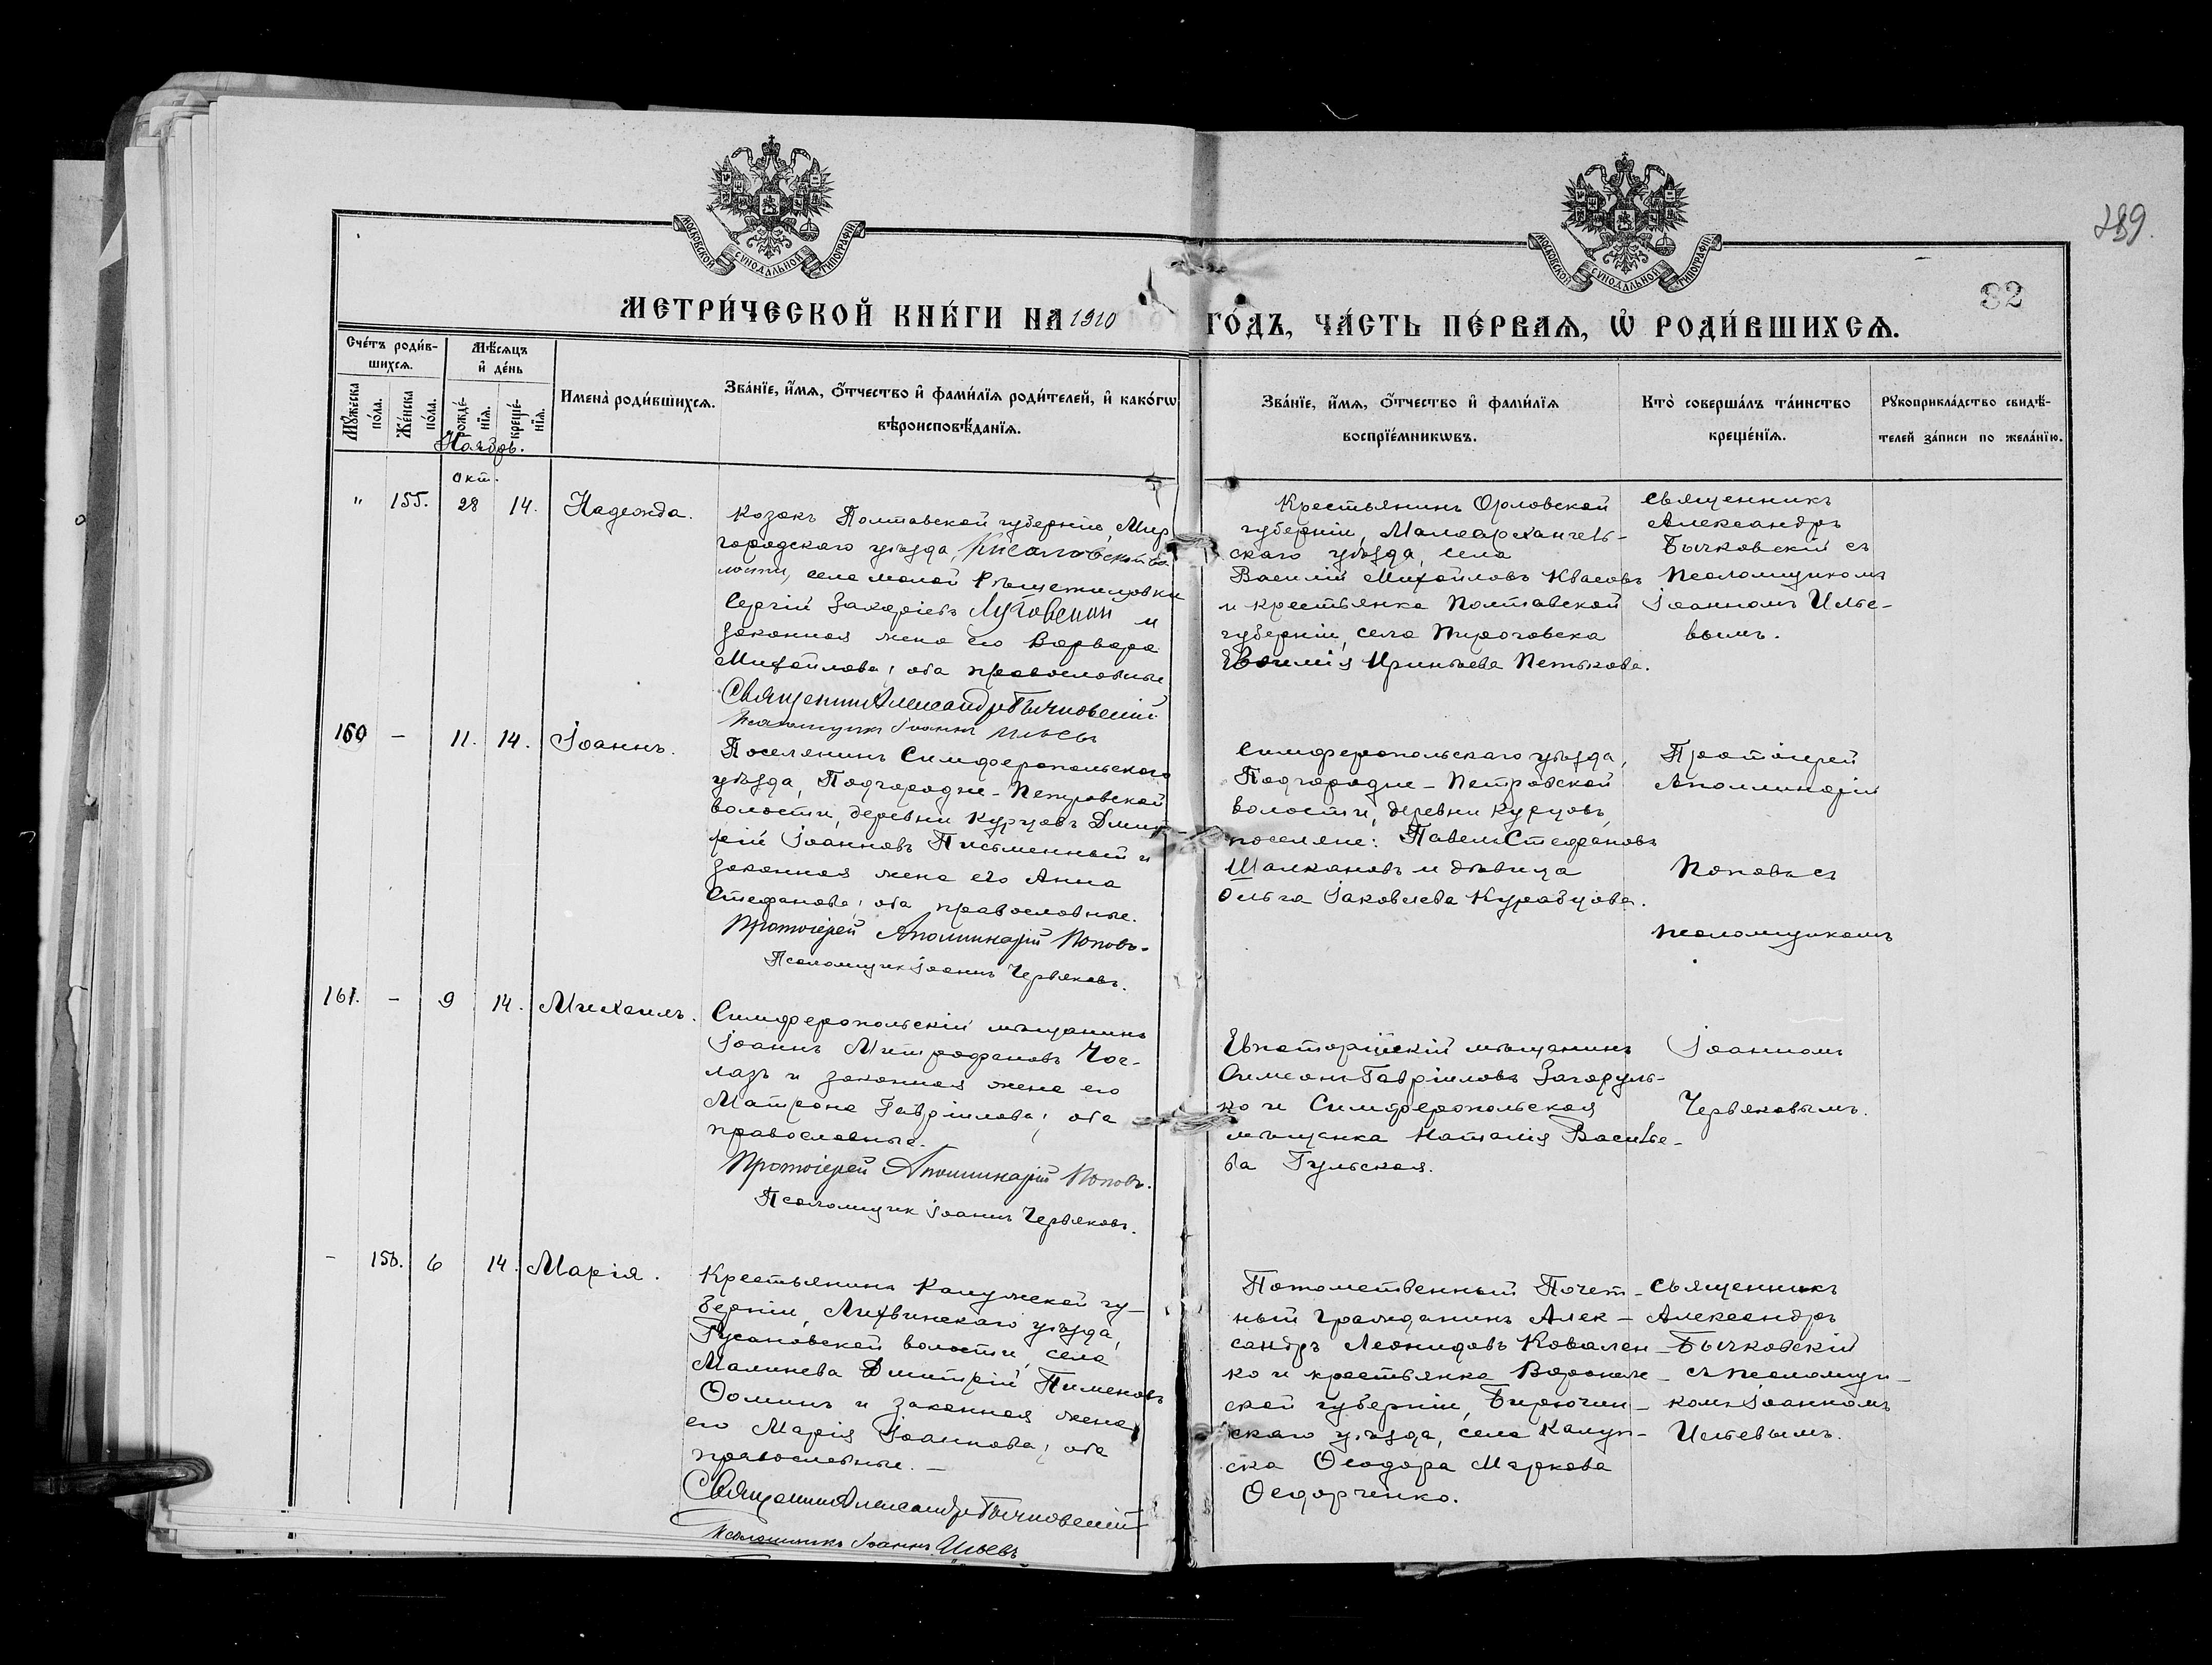 289.
МОСКОВСКОЙ СУНОДАЛЬНОЙ ТИПОГРАФІИ
МОСКОВСКОЙ СУНОДАЛЬНОЙ ТИПОГРАФІИ
82
МЕТРИ́ЧЕСКОЙ КНИ́ГИ НА 1910 ГО́ДЪ, ЧА́СТЬ ПЕ́РВАѦ, Ѽ РОДИ́ВШИХСѦ.
Сче́тъ роди́в-
шихсѧ.
Мꙋ́жеска по́ла.
Же́нска по́ла.
Мѣ́сѧцъ и҆ де́нь
рожде́-нїѧ.
креще́-нїѧ.
Имена̀ роди́вшихсѧ.
Зва́нїе, и҆́мѧ, ѻ҆́тчество и҆ фами́лїѧ роди́телей, и҆ како́гѡ
вѣроисповѣ́данїѧ.
Зва́нїе, и҆́мѧ, ѻ҆́тчество и҆ фами́лїѧ
воспрїе́мникѡвъ.
Кто̀ соверша́лъ та́инство
креще́нїѧ.
Рꙋкоприкла́дство свидѣ́-
телей за́писи по жела́нїю.
Ноябрь.
Окт.
" 155. 28 14. Надежда.
Козакъ Полтавской губерніи, Мир
городскаго уѣзда,
лости, села малой
Сергій Захаріевъ Луговенко и
законная жена его Варвара
Михайлова; оба православные
Священникъ Александръ Бычковскій
Псаломщикъ Іоаннъ Ильевъ
Крестьянинъ Орловской
губерніи, Малоархангель-
скаго уѣзда, села
Василій Михайловъ Квасовъ
и крестьянка Полтавской
губерніи, села Пироговска
Евфимія Принѣева Петькова.
Священникъ
Александръ
Бычковскій съ
псаломщикомъ
Іоанномъ Илье-
вымъ.
160 – 11. 14. Іоаннъ.
Поселянинъ Симферопольскаго
уѣзда, Подгородне-Петровской
волости, деревни Курцовъ Дмит
рій Іоанновъ Письменный и
законная жена его Анна
Стефанова; оба православные.
Протоіерей Аполлинарій Поповъ.
Псаломщикъ Іоаннъ Червяковъ.
Симферопольскаго уѣзда,
Подгородне-Петровской
волости, деревни Курцовъ,
поселяне: Павелъ Стефановъ
Шалкановъ и дѣвица
Ольга Іаковлева Курабцова.
Протоіерей
Аполлинарій
Поповъ съ
псаломщикомъ
161. – 9 14. Михаилъ.
Симферопольскій мѣщанинъ
Іоаннъ Митрофановъ Чог-
лазъ и законная жена его
Матрона Гавріилова; оба
православные. –
Протоіерей Аполлинарій Поповъ.
Псаломщик Іоаннъ Червяковъ.
Евпаторійскій мѣщанинъ
Симеонъ Гавріиловъ Загоруль-
ко и Симферопольская
мѣщанка Наталія Василье-
ва Гульская.
Іоанномъ
Червяковымъ.
– 156. 6 14. Марія.
Крестьянинъ Калужской гу-
берніи, Лихвинскаго уѣзда,
Русановской волости, села
Малинева Дмитрій Пименовъ
Ѳоминъ и законная жена
его Марія Іоаннова; оба
православные. –
Священникъ Александръ Бычковскій
Псаломщикъ Іоаннъ Ильевъ
Потомственный Почет-
ный гражданинъ Алек-
сандръ Леонидовъ Ковален-
ко и крестьянка Воронеж-
ской губерніи, Бирючин-
скаго уѣзда, села Калун-
ска Ѳеодора Маркова
Ѳедорченко.
Священникъ
Александръ
Бычковскій
съ псаломщи-
комъ Іоанномъ
Ильевымъ.